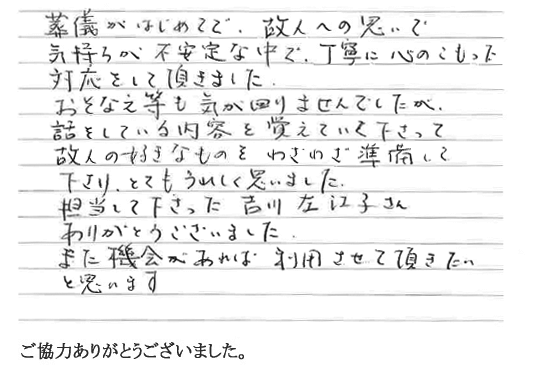 葬儀がはじめてで、故人への思いで
気持ちが不安定な中で、丁寧に心のこもった
対応をして頂きました。
おそなえ等も気が回りませんでしたが、
話をしている内容を覚えていて下さって
故人の好きなものをわざわざ準備して
下さり、とてもうれしく思いました。
担当して下さった 吉川 左江子さん
ありがとうございました。
また機会があれば利用させて頂きたい
と思います
ご協力ありがとうございました。